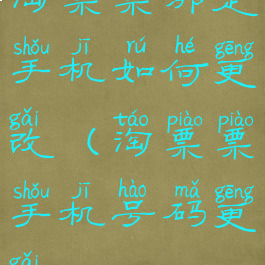 淘票票绑定
shǒu jī rú hé gēng
手机如何更
gǎi táo piào piào
改（淘票票
shǒu jī hào mǎ gēng
手机号码更
gǎi